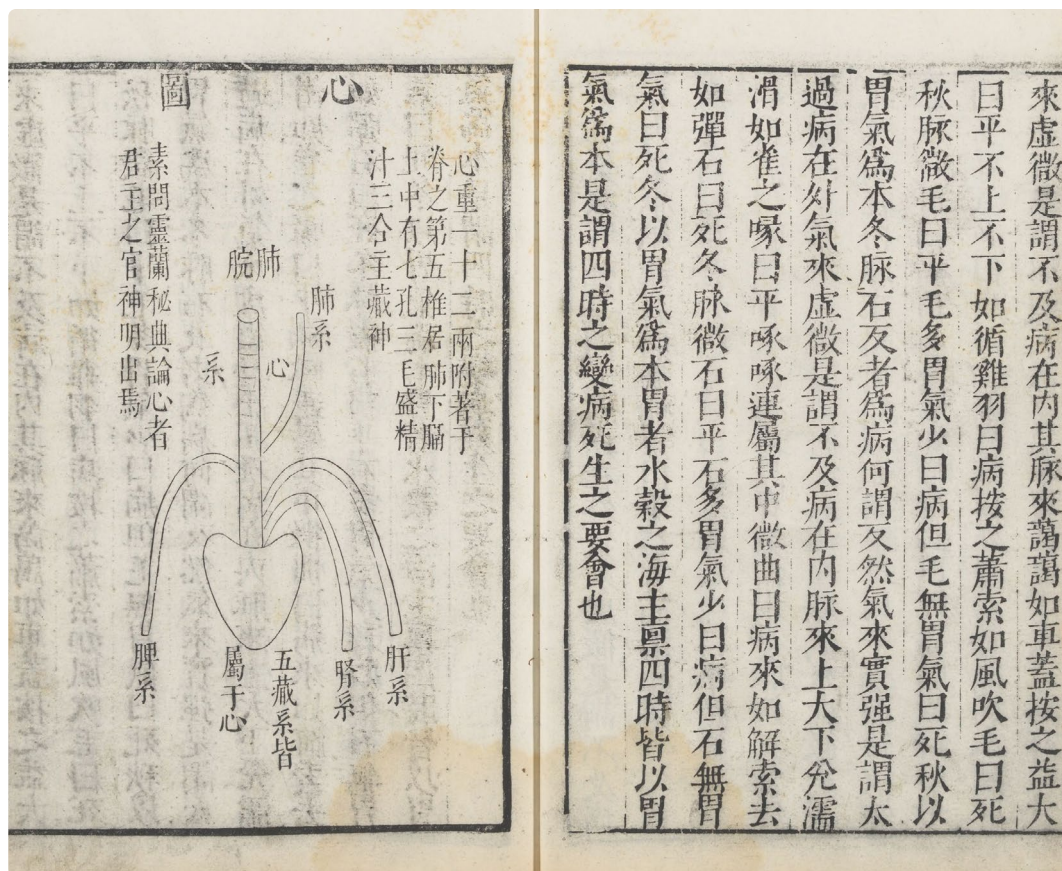 來虛微是謂不及病在內其脉來藹藹如車蓋按之益大
曰平不上不下如循雞羽曰病按之蕭索如風吹毛曰死
秋脉微毛曰平毛多胃氣少曰病但毛無胃氣曰死秋以
胃氣爲本冬脉石反者爲病何謂反然氣來實强是謂太
過病在外氣來虛微是謂不及病在內脉來上大下兊濡
滑如雀之喙曰平啄啄連屬其中微曲曰病來如解索去
如彈石曰死冬脉微石曰平石多胃氣少曰病但石無胃
氣曰死冬以胃氣爲本胃者水穀之海主禀四時皆以胃
氣爲本是謂四時之變病死生之要會也
心圖
心重一十二兩附著于
脊之第五椎居肺下膈
上中有七孔三毛盛精
汁三合主藏神
肺系
肺脘
心系
肝系
腎系
五藏系皆
屬于心
脾系
素問靈蘭秘典論心者
君主之官神明出焉